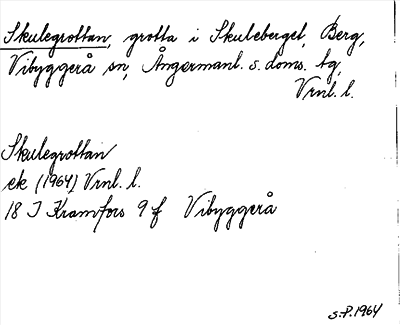 Skulegrottan, grotta i Skuleberget, Berg,
Vibyggerå sn, Ångermanl. s. doms. tg,
Vrnl. l.
Skulegrottan
ek (1964) Vrnl. l.
18 I Kramfors 9 f Vibyggerå
S.P. 1964